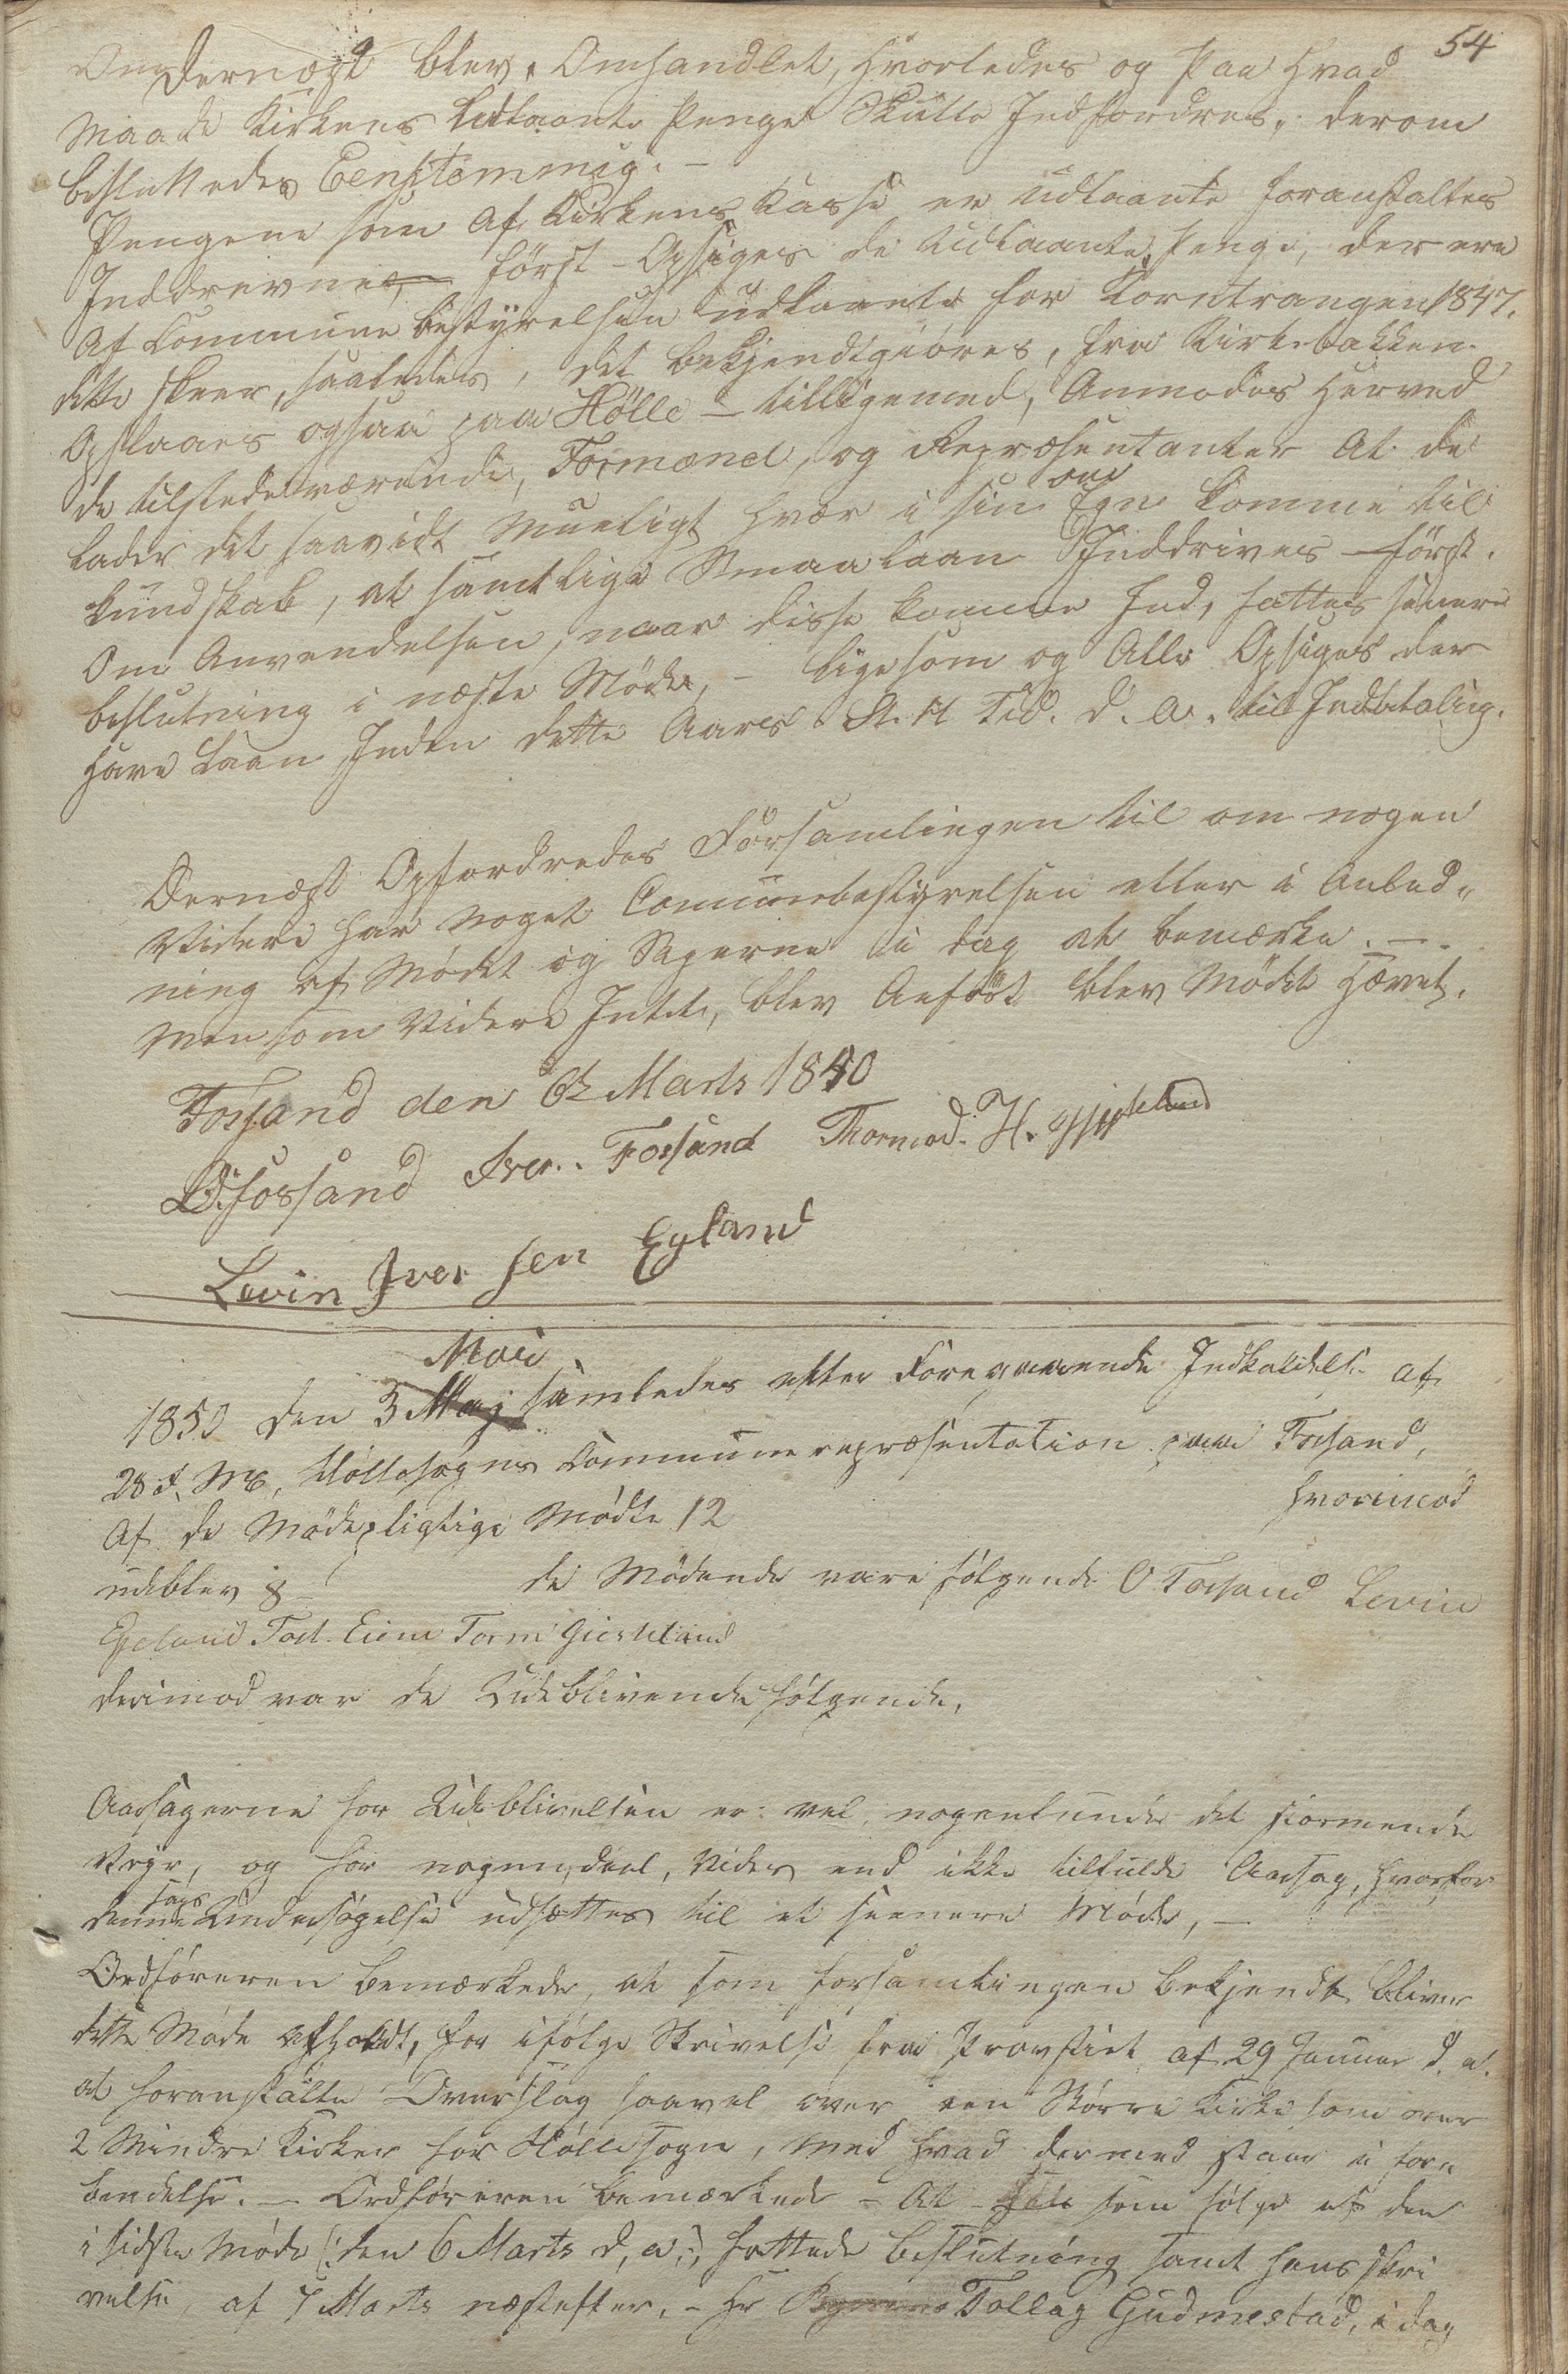 54
Dernæst blev Omhandlet, Hvorledes og paa Hvad
Maade Kirkens Udlaante Penge Skulle Indfordres, derom
besluttedes Eenstemmig. –
Pengene som af Kirkens Kasse er udlaante foranstaltes
Inddrevne, først – Opsiges de Udlaante Penge, der ere
Af Commune bestyrelsen udlaante for Korntrangen 1847.
dette skeer, saaledes, det bekjendtgiöres, fra Kirkebakken
Opslaaes ogsaa paa Hölle – tilligemed, Anmodes Herved
de tilstedeværende, Formænd, og Repræsentanter At de
lader det saavidt Mueligt hver i sin Egn komme til
kundskab, at samtlige Smaalaan Inddrives – først.
Om Anvendelsen, naar disse komme Ind, fattes senere
beslutning i næste Möde, – ligesom og Alle Opsiges der
have Laan Inden dette Aars St. H Tid. d. A. til Indbetaling.
Dernæst Opfordredes Forsamlingen til om nogen
Videre har noget Communebestyrelsen eller i Anled-
ning af Mödet og Sagerne i dag at bemærke. –
Men som Videre Intet, blev Anfört blev Mödet Hævet.
Fossand den 6te Marts 1850
O. Fossand Iver. Fossand Thormod. H. Gjeskeland
Levin Iversen Egland
Mai
1850 den 3 Maj samledes efter Foregaaende Indkaldelse af
28 f. M., Höllesogns Communerepræsentation paa Fossand,
Af de Mödepligtige Mödte 12 hvorimod
udeblev 8 – de Mödende vare fölgende O Fossand Levin
Egeland Tost. Eiene Torm Gieskeland
derimod var de Udeblivende fölgende,
Aarsagerne for Udeblivelsen er vel nogenlunde det stormende
Veyr, og for nogen deel, Vides end ikke tilfulde Aarsag, hvorfor
denne sags Undersögelse udsættes til et seenere Möde, –
Ordföreren bemærkede, at som forsamlingen bekjendt bliver
dette Möde Afholdt, for ifölge Skrivelse fra Provstiet af 29 Januar d. a.
at foranstalte Overslag saavel over een Större Kirke som over
2 Mindre Kirker for Höllesogn, med hvad dermed staar i for-
bindelse. – Ordföreren bemærkede – At – som fölge af den
i sidste Möde (: den 6 Marts d, a :) fattede beslutning samt hans skri
velse af 7 Marts næstefter, – Hr Tollag Gudmestad, i dag